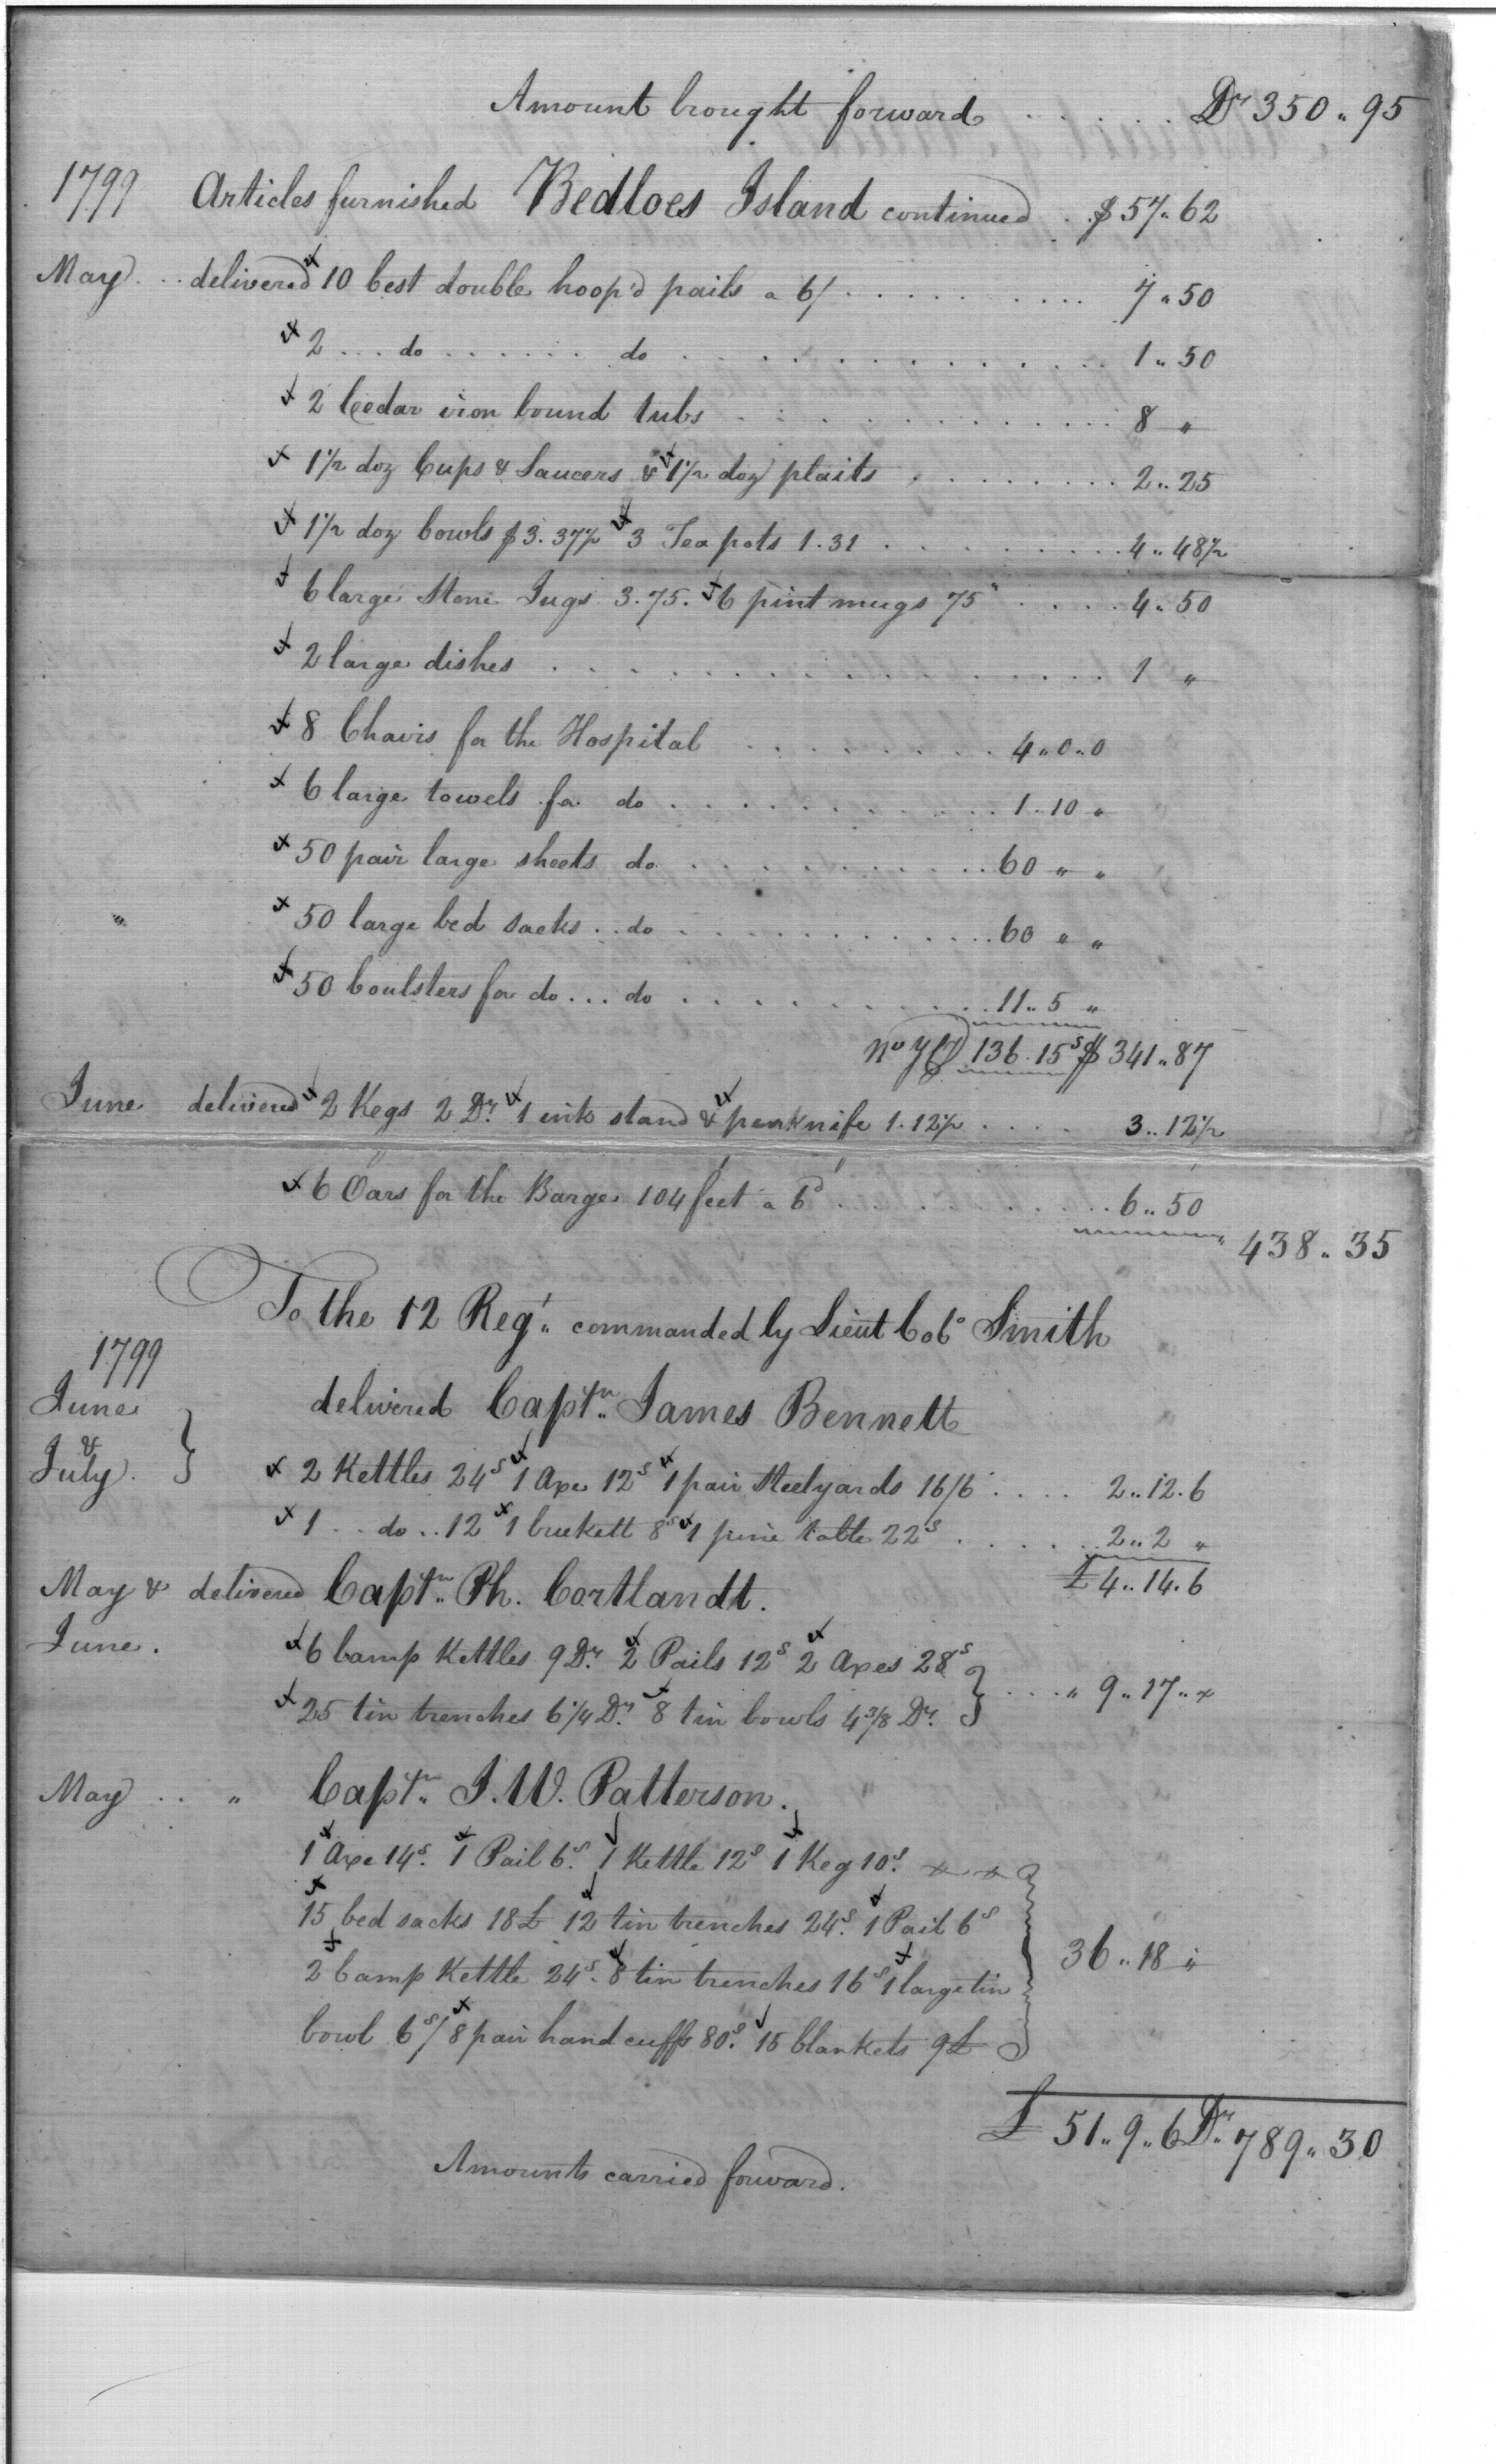 Amount brought forward ...... Dr 350 " 95
1799 Articles furnished Bedloes Island continued . . $ 57 " 62
May . . . delivered 10 best double hoop'd pails a 6/ . . . . . . . . 7 " 50
2 . . . do . . . . . . do . . . . . . . . . . . . . 1 " 50
2 Ceedar iron bound tubs . . . . . . . . . . . 8 "
1½ doz Cups & Saucers & 1½ doz plaits . . . . . . . . 2 " 25
1½ doz bowls $3.37½ 3 Tea pots 1.31 . . . . . . . . 4 " 48½
6 large Stone Jugs 3.75. 6 pint mugs 75" . . . . 4 " 50
2 large dishes . . . . . . . . . . . . . . . . 1 "
8 Chairs for the Hospital . . . . . . . . 4 " 0 " 0
6 large towels for do . . . . . . . . . . . 1 . . 10 "
50 pair large sheets do . . . . . . . . . . 60 " "
50 large bed sacks . . do . . . . . . . . . . . 60 " "
50 boulsters for do . . . do . . . . . . . . . . 11 " 5 "
136 . 15 s $ 341 " 87
June delivered 2 Kegs 2 Dr. 1 ink stand & penknife 1.12½ . . . . 3 " 12½
6 Oars for the Barge 104 feet a 6d . . . . . . . . . 6 " 50
438 " 35
To the 12 Regt. commanded by Lieut Colo Smith
1799
June
delivered Captn. James Bennett
&
July. } 2 Kettles 24s 1 Axe 12s 1 pair Steelyards 16/6 . . . . 2 " 12 . 6
1 . . do . . 12 1 buckett 8s 1 pine table 22s . . . . . 2 " 2 "
£ 4 " 14 . 6
May & delivered Captn. Ph. Cortlandt.
June. 6 Camp Kettles 9 Dr. 2 Pails 12s 2 Axes 28s
25 tin trenches 6¼ Dr. 8 tin bowls 4⅜ Dr. } . . . . " 9 " 17 "
May . . " Captn. J. W. Patterson.
1 Axe 14s. 1 Pail 6s. 1 Kettle 12s 1 Keg 10s.
15 bed sacks 18£ 12 tin trenches 24s. 1 Pail 6s
2 Camp Kettle 24s. 8 tin trenches 16s 1 large tin 36 " 18 "
bowl 6s/ 8 pair hand cuffs 80s. 15 blankets 9£
£ 51 " 9 " 6 Dr. 789 " 30
Amounts carried forward.